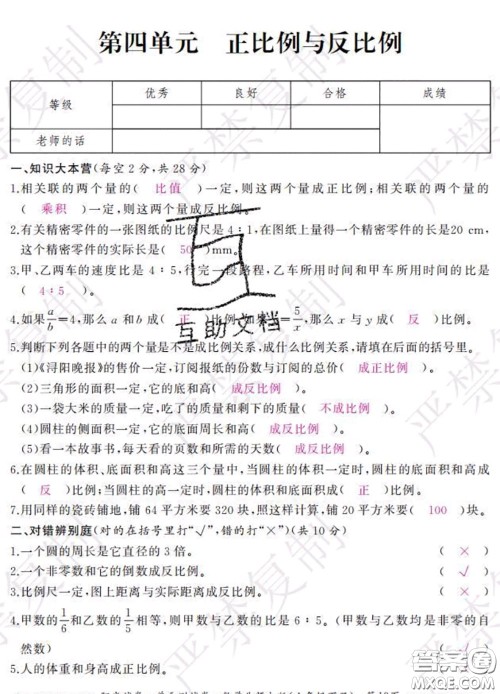 第四单元 正比例与反比例
等级 优秀 良好 合格 成绩
老师的话
一、知识大本营(每空2分,共28分)
1.相关联的两个量的( 比值 )一定,则这两个量成正比例;相关联的两个量的
( 乘积 )一定,则这两个量成反比例。
2.有关精密零件的一张图纸的比例尺是4∶1,在图纸上量得一个精密零件的长是20 cm,
这个精密零件的实际长是( 50 )mm。
3.甲、乙两车的速度比是4∶5,行完一段路程,乙车所用时间和甲车所用时间的比是
( 4∶5 )。
4.如果a/b=4,那么a和b成( 正 )比例;如果 =5/x,那么x与y成( 反 )比例。
5.判断下列各题中的两个量是不是成比例关系,成什么比例关系,请填在后面的括号里。
(1)《浔阳晚报》的售价一定,订阅报纸的份数与订阅的总价( 成正比例 )。
(2)三角形的面积一定,它的底和高( 成反比例 )。
(3)一袋大米的质量一定,吃了的质量和剩下的质量( 不成比例 )。
(4)圆柱的侧面积一定,它的底面周长和高( 成反比例 )。
(5)看一本故事书,每天看的页数和所需的天数( 成反比例 )。
6.在圆柱的体积、底面积和高这三个量中,当圆柱的体积一定时,圆柱的底面积和高成
( 反 )比例;当圆柱的高一定时,圆柱的体积和底面积成( 正 )比例。
7.用同样的瓷砖铺地,铺64平方米要320块,照这样计算,铺20平方米要( 100 )块。
二、对错辨别庭(对的在括号里打“√”,错的打“×”)(共10分)
1.一个圆的周长是它直径的3倍。 ( × )
2.一个非零数和它的倒数成反比例。 ( √ )
3.比例尺一定,图上距离与实际距离成反比例。 ( × )
4.甲数的1/6和乙数的1/5相等,则甲数与乙数的比是6∶5。(甲数与乙数均是非零的自
然数)
5.人的体重和身高成正比例。
互助文档
严禁复制
答案圈